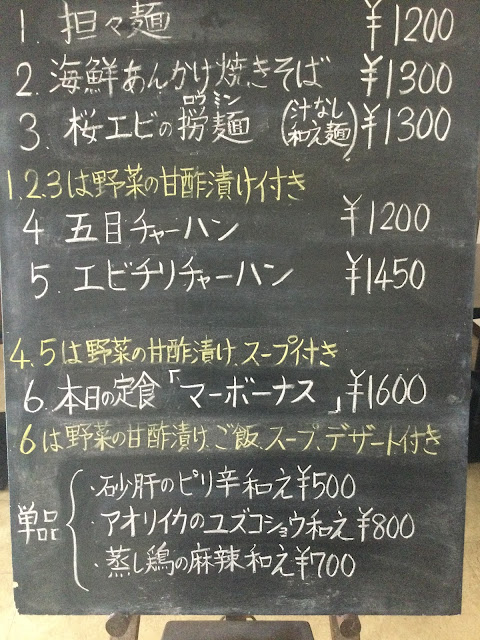 1. 担々麺 ¥1200
2. 海鮮あんかけ焼きそば ¥1300
ロウミン
3. 桜エビの撈麺 (汁なし和え麺) ¥1300
1.2.3は野菜の甘酢漬け付き
4 五目チャーハン ¥1200
5. エビチリチャーハン ¥1450
4.5は野菜の甘酢漬け、スープ付き
6. 本日の定食「マーボーナス」¥1600
6は野菜の甘酢漬け、ご飯、スープ、デザート付き
単品
・砂肝のピリ辛和え¥500
・アオリイカのユズコショウ和え¥800
・蒸し鶏の麻辣和え¥700